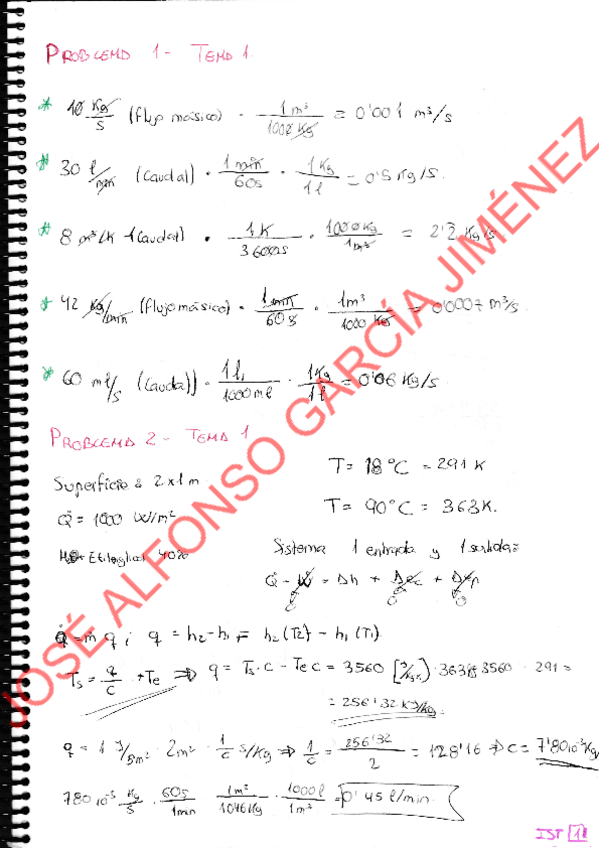 PROBLEMA 1 - TEMA 1.
* 10 Kg/s (flujo másico) · 1 m³/1000 Kg = 0'001 m³/s
* 30 l/min (caudal) · 1 min/60s · 1 Kg/1 l = 0'5 Kg/s.
* 8 m³/h (caudal) · 1 h/3600s · 1000 Kg/1 m³ = 2'2 Kg/s
* 42 Kg/min (flujo másico) · 1 min/60 s · 1m³/1000 Kg = 0'0007 m³/s.
* 60 ml/s (caudal) · 1 l/1000 ml · 1 Kg/1 l = 0'06 Kg/s.
PROBLEMA 2 - TEMA 1
Superficie 2 x 1 m
T = 18°C = 291 K
Q̇ = 1000 W/m²
T = 90°C = 363 K.
Etilenglicol 40%
Sistema 1 entrada y 1 salida:
Q̇ - Ẇ = Δh + Δec + Δep
0 0 0
Q̇ = ṁ q ; q = h₂ - h₁ = h₂(T2) - h₁(T1)
Ts = q/c + Te ⇒ q = Ts · c - Te c = 3560 [J/kgK] · 363 - 3560 · 291 =
= 256'32 KJ/Kg.
q = 1 J/sm² · 2m² · 1/c s/Kg ⇒ 1/c = 256'32/2 = 128'16 → c = 7'80·10⁻³ Kg/
780 10⁻³ Kg/s · 60s/1min · 1m³/1046 Kg · 1000 l/1m³ = 0'45 l/min.
IST 1
JOSÉ ALFONSO GARCÍA JIMÉNEZ